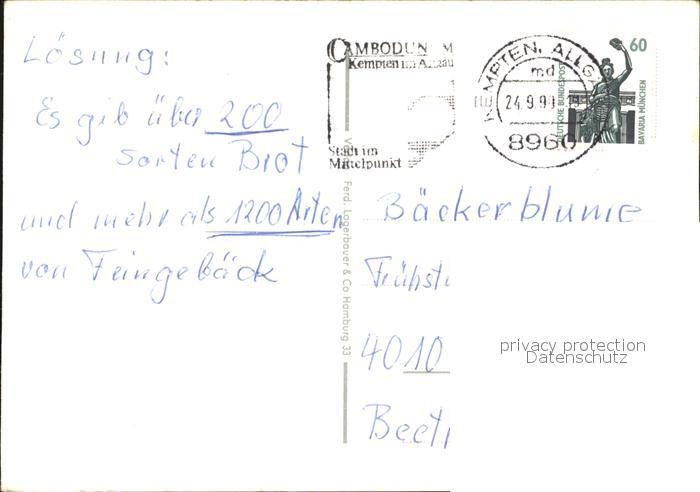 Lösung:
Es gib über 200
Sorten Brot
und mehr als 1200 Arten
von Feingebäck
CAMBODUN M
Kempten im Allgäu
Stadt im
Mittelpunkt
KEMPTEN, ALLG
md
24.9.90
8960
60
DEUTSCHE BUNDESPOST
BAVARIA MÜNCHEN
Ferd. Lagerbauer & Co Hamburg 33
Bäckerblume
Frühst
4010
privacy protection
Datenschutz